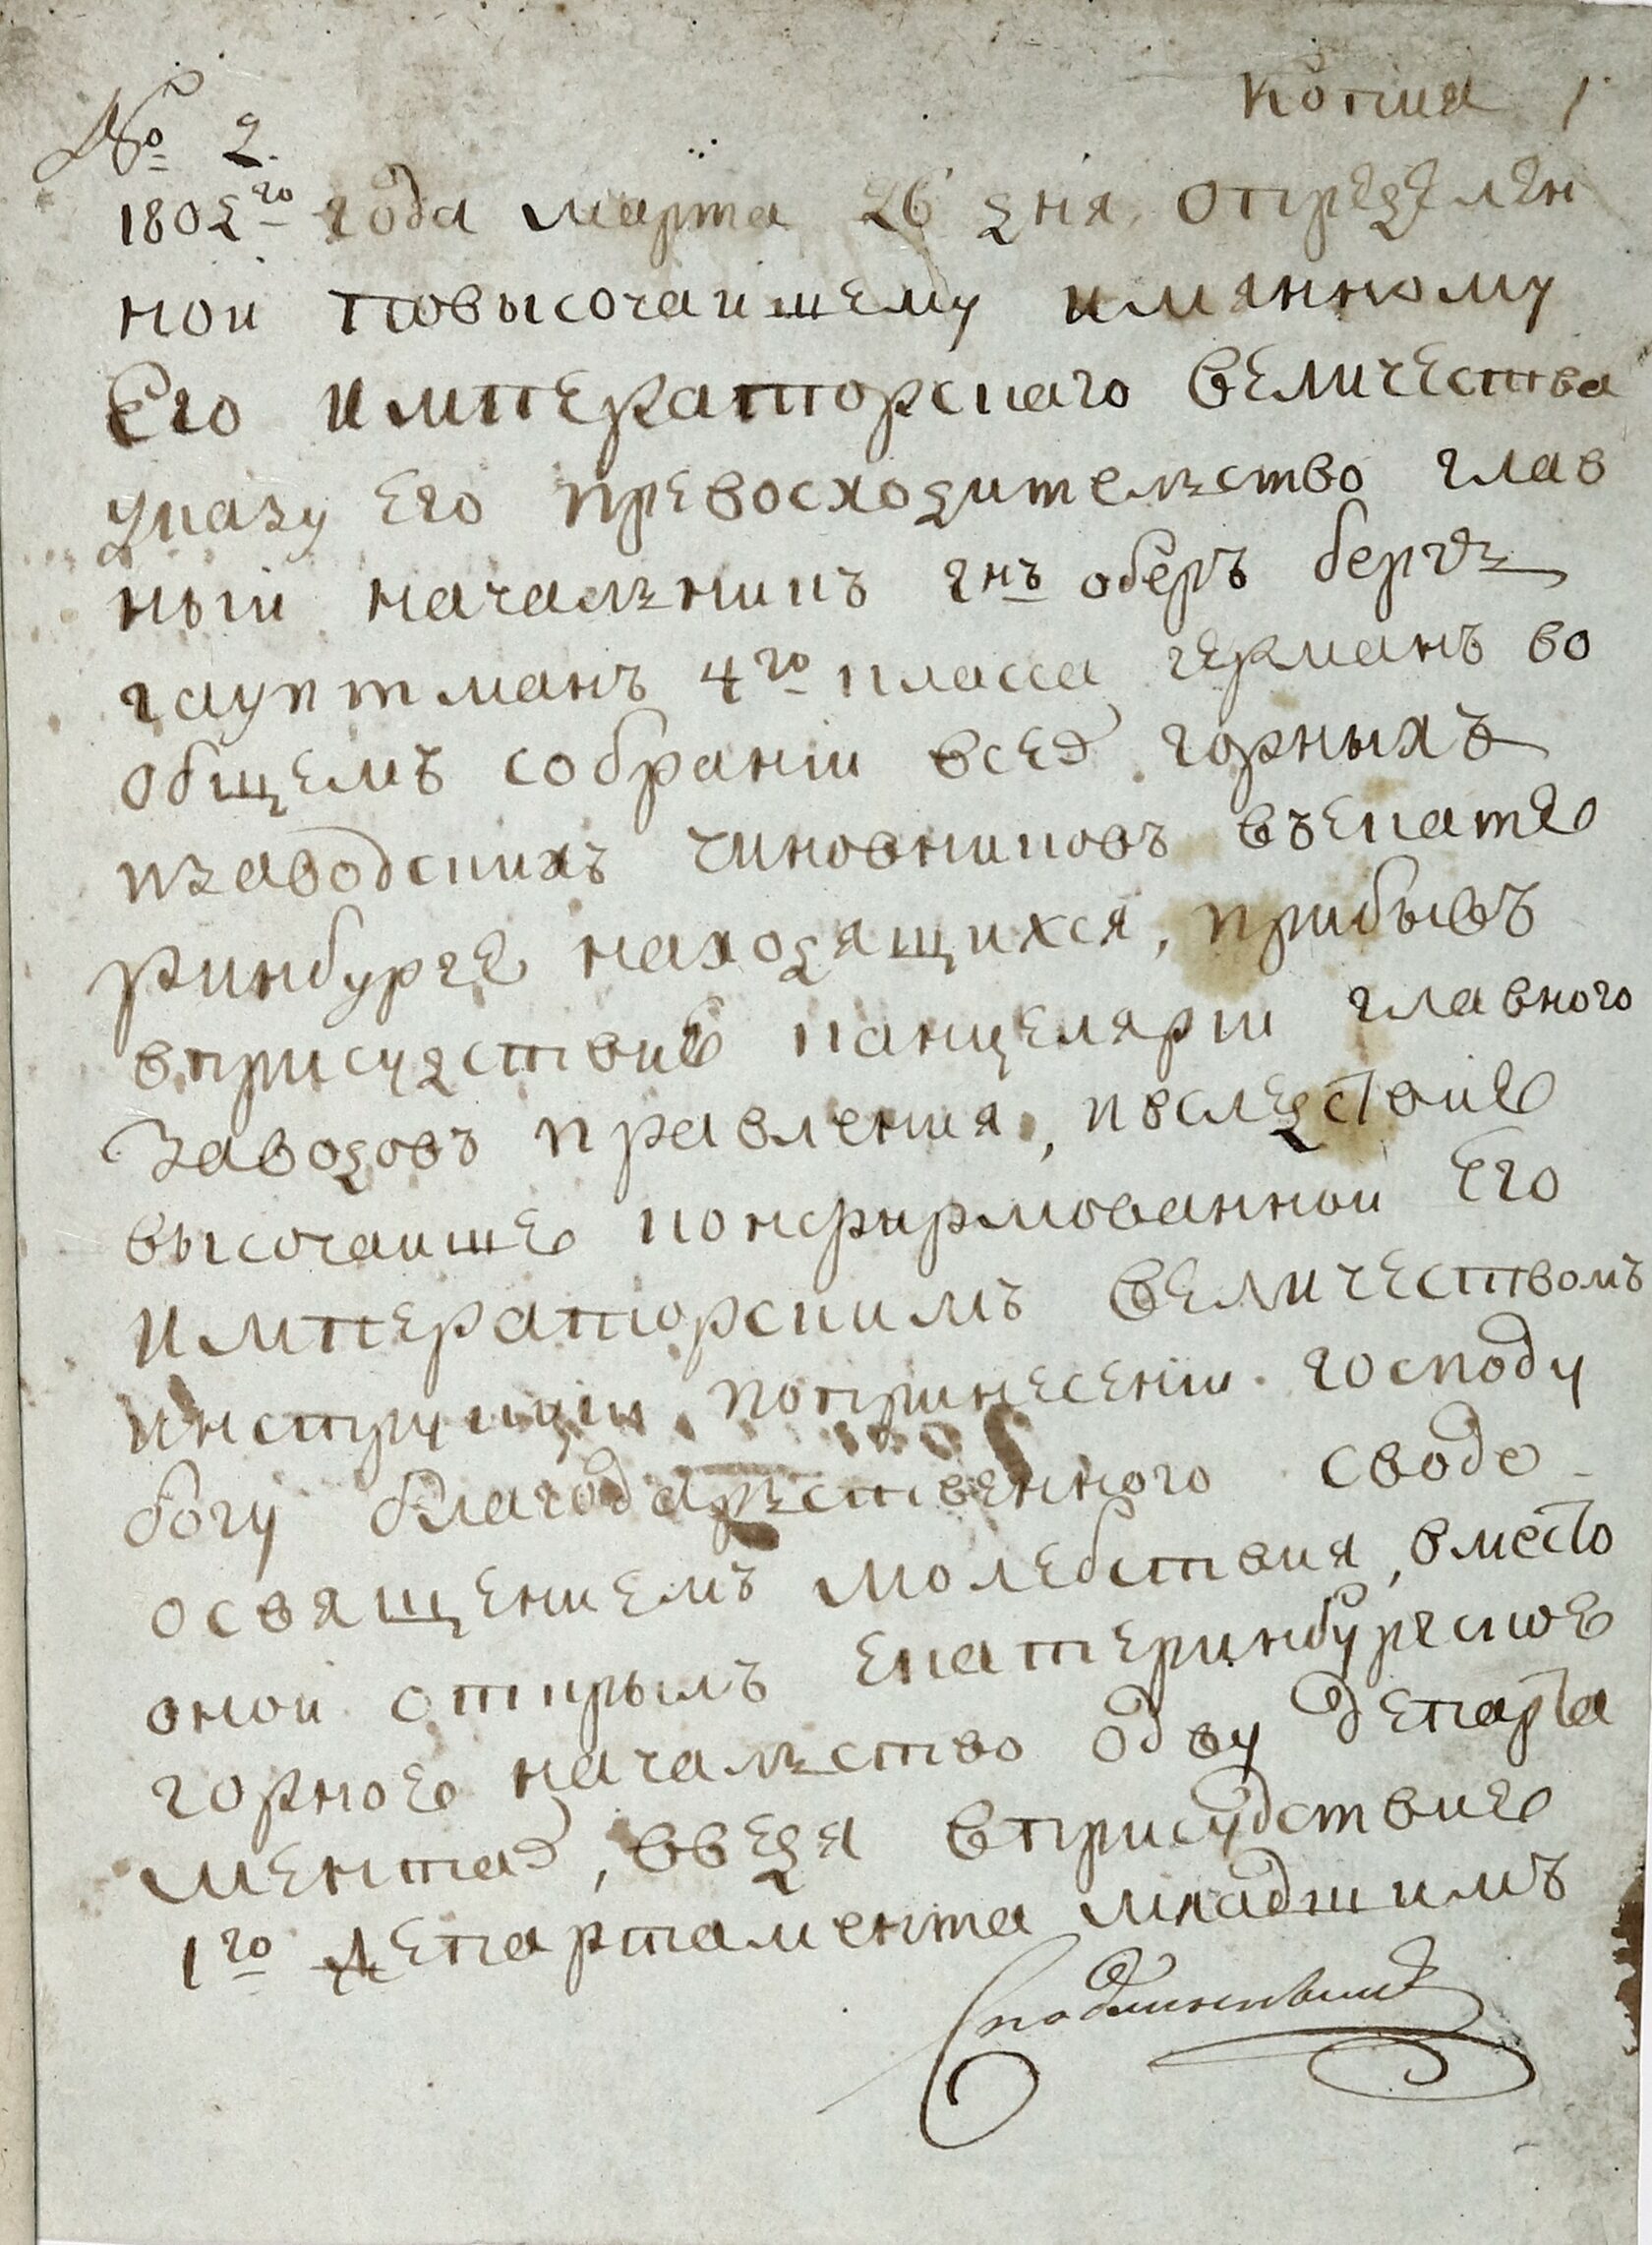 Копия 1
№ 2.
1802го года марта 26 дня, определен
ной повысочаишему имянному
Его императорскаго величества
указу его превосходительство глав
ный начальникъ гнъ оберъ бергъ
гауптманъ 4го класса германъ во
общемъ собрании всех горныхъ
изаводскихъ чиновниковъ въекате
ринбурге находящихся, прибывъ
вприсудствие канцелярии главного
заводовъ правления, ивследствие
высочаише конфирмованной Его
императорскимъ величествомъ
инструкции, попринесении господу
богу благодарственного сводо-
освящениемъ молебствия, вместо
оной открылъ екатеринбургское
горное начальство одву департа
ментах, введя вприсудствие
1го департамента младшимъ